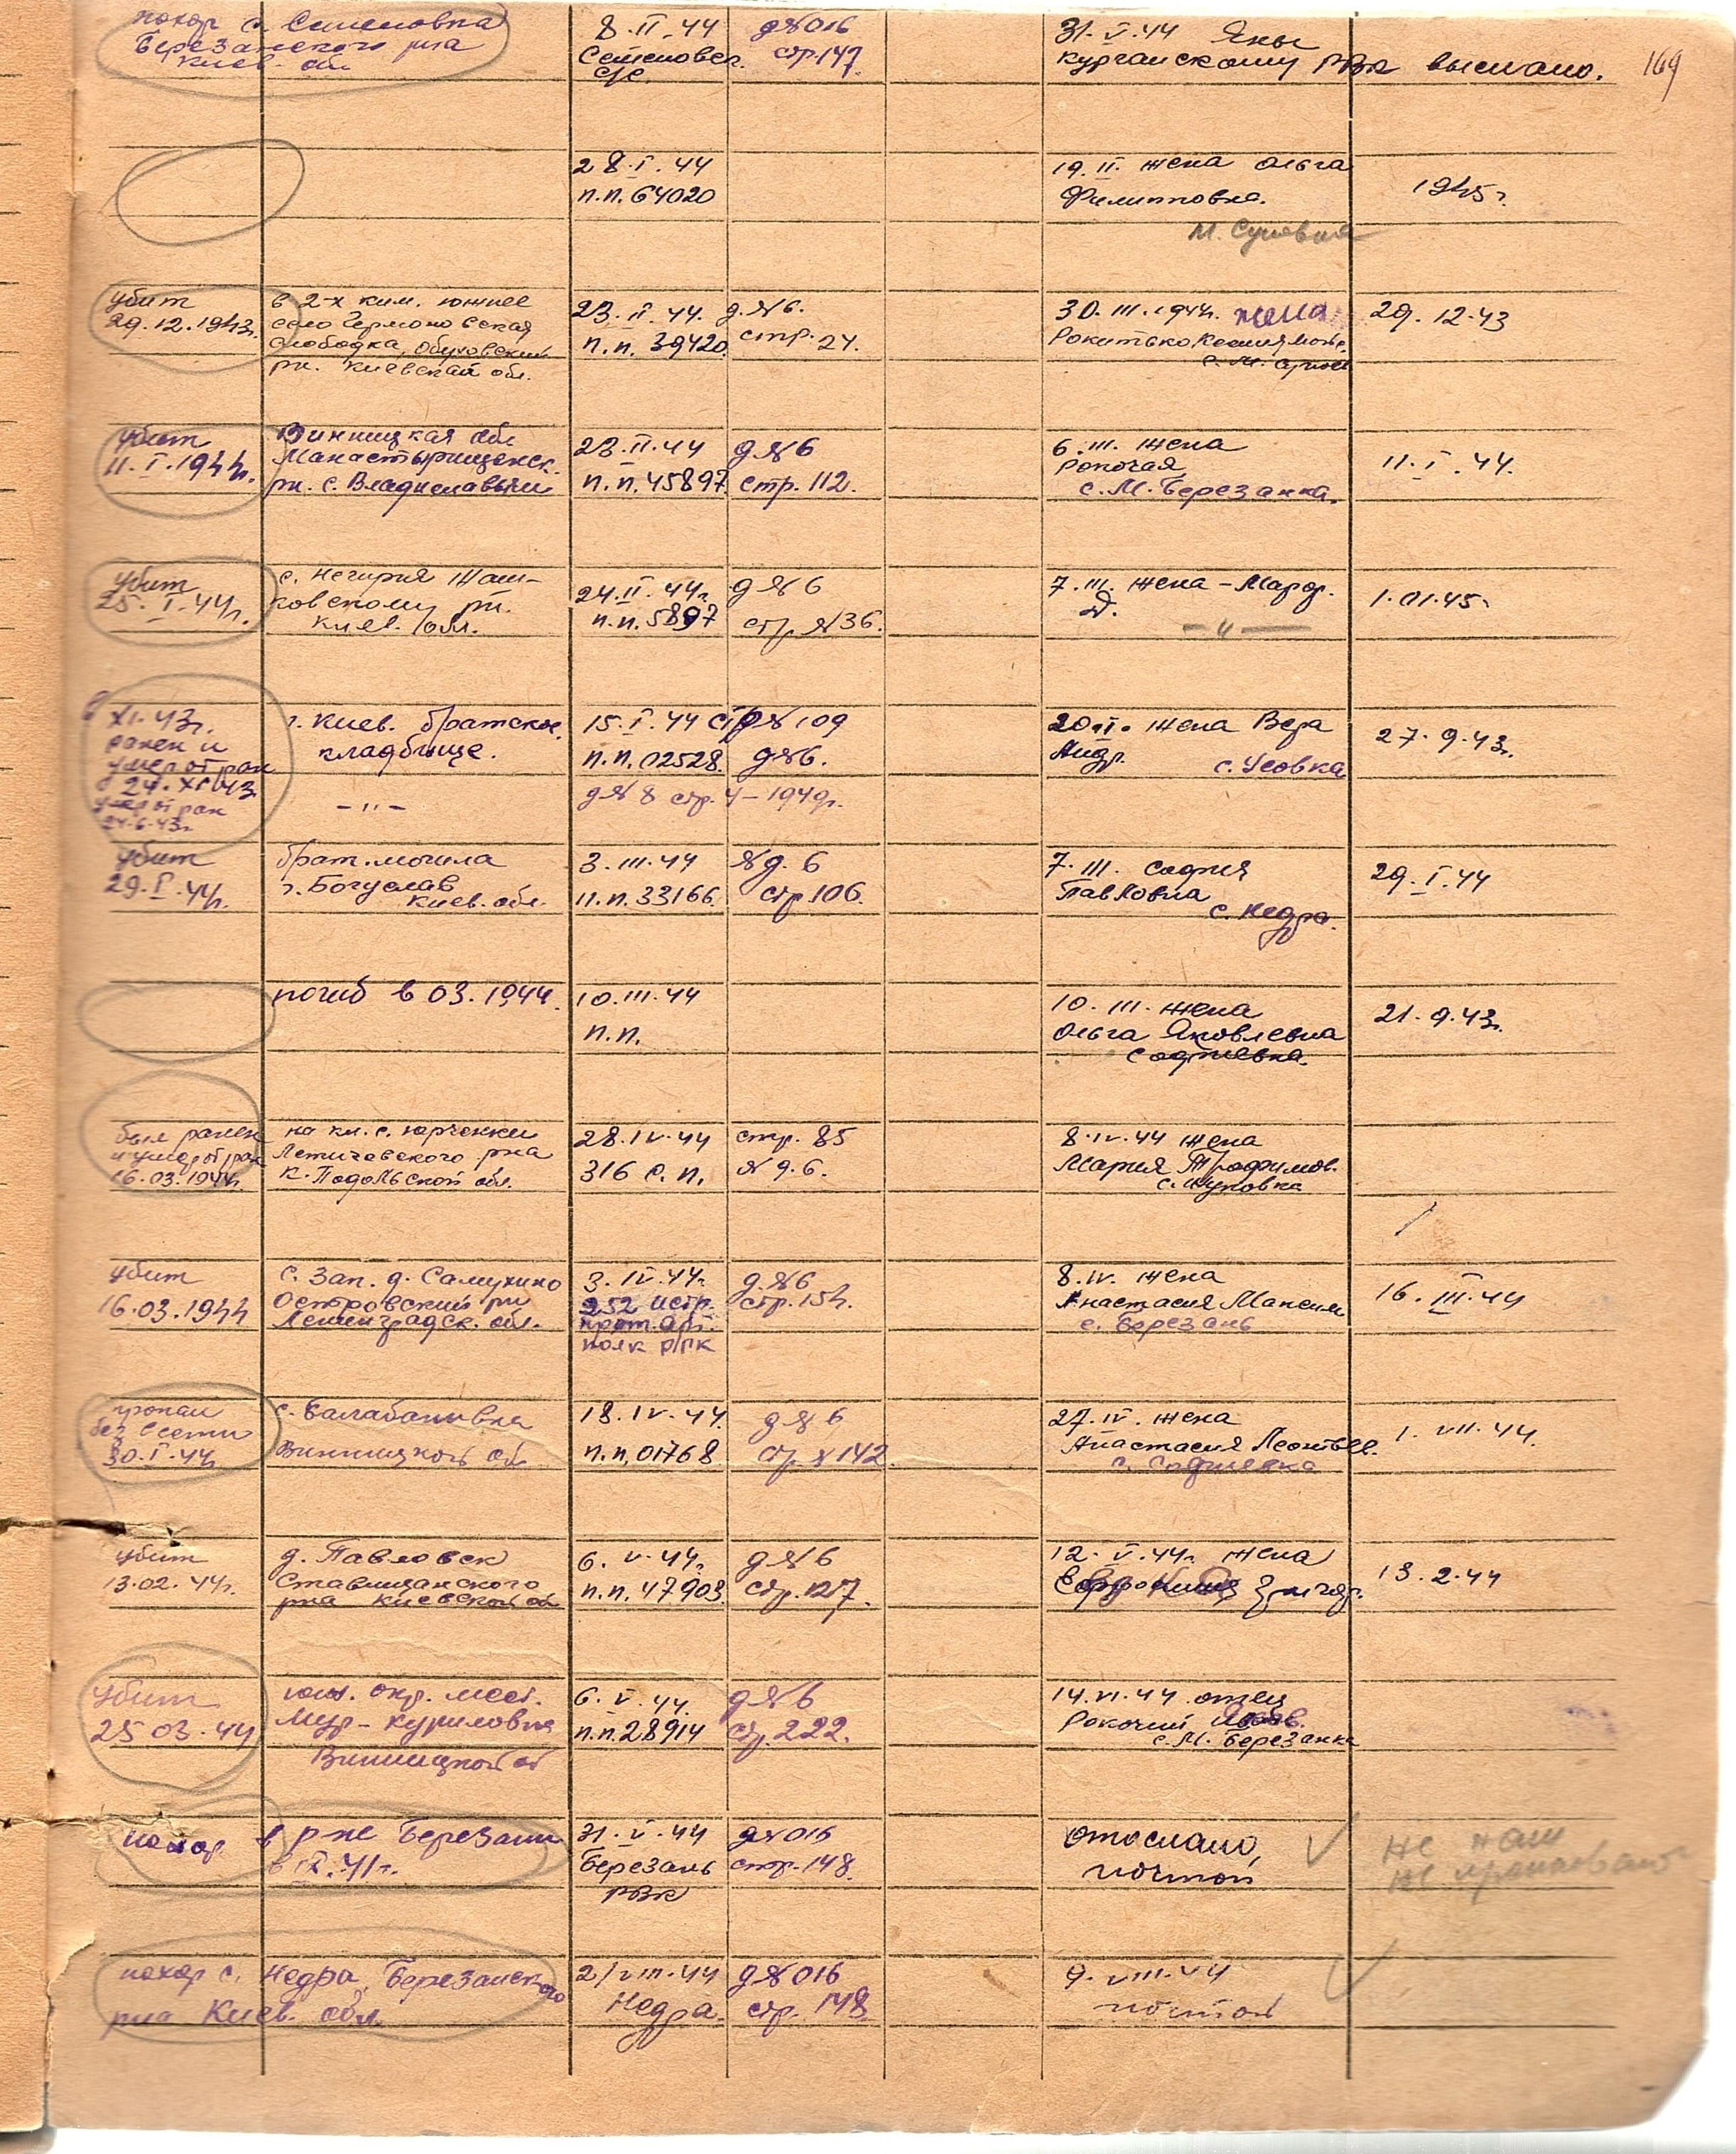 169
похор с. Семеновка
Березанского р-на
Киев. обл
8.II.44
Семеновск.
с/с
д№016
стр.147.
31.V.44 Яны
Курганскому РВК выслано.
28.I.44
п.п.64020
19.II. жена Ольга
Филипповна.
1945г.
убит
29.12.1943г.
в 2-х клм. южнее
село Германовская
слободка, Обуховский
рн. Киевской обл.
23.II.44.
п.п.39420.
д.№6.
стр.24.
30.III.1944г. жена
29.12.43
убит
11.I.1944г.
Винницкая обл
Манастырищенск.
рн. с.
23.II.44
п.п.45897.
д№6
стр.112.
6.III. жена
Рокочая
с.М.Березанка.
11.I.44.
убит
25.I.44г.
с. Нагирня Жаш-
ковскому рн.
Киев. обл.
24.II.44г.
п.п.5897
д№6
стр №36.
7.III. жена-
1.01.45г
XI.43г.
ранен и
умер от ран
24.XI.43
умер от ран
24.6.43г
г. Киев. братское
кладбище.
-"-
15.I.44
п.п.02528.
стр№109
д№6.
д№8 стр.4-1949г.
20.II. жена Вера
Андр.
с. Усовка
27.9.43г.
убит
29.I.44г.
брат.могила
г.Богуслав
Киев.обл.
3.III.44
п.п.33166.
№д.6
стр.106.
7.III. София
Павловна
с. Недра.
29.I.44
погиб в 03.1944.
10.III.44
п.п.
10.III. жена
Ольга Яковлевна
Софиевка.
21.9.43г.
был ранен
и умер от ран
16.03.1944г.
на кл. с. Юрченки
Летичевского р-на
К.Подольской обл.
28.IV.44
316 с.п.
стр.85
№д.6.
8.IV.44 жена
Мария Трофимов.
убит
16.03.1944
с. Зап. д. Самухино
Островский рн
Ленинградск. обл.
3.IV.44г.
252 истр.
прот.арт.
полк РГК
д.№6
стр.154.
8.IV. жена
Анастасия Максим
с. Березань
16.III.44
пропал
без вести
30.I.44г
с. Балабановка
Винницкой обл
18.IV.44
п.п.01768
д№6
стр №142.
27.IV. жена
Анастасия Леонтьев.
с. Софиевка
1.VII.44.
убит
13.02.44г.
д. Павловск
Ставищанского
р-на Киевской об
6.V.44г.
п.п.47903.
д№6
стр.127.
12.V.44г. жена
13.2.44
убит
25 03.44
юж. окр. мест.
Мур-Куриловка
Винницкой об
6.V.44.
п.п.28914
д№6
стр 222.
14.VI.44 отец
Рокочий
с.М.Березанка
похор.
в р-не Березани
в IX.41г.
31.V.44
Березань
РВК
д№016
стр.148.
отослано,
почтой
не наш
похор с. Недра, Березанского
р-на Киев. обл.
2/VIII.44
Недра.
д№016
стр.148.
9.VIII.44
почтой